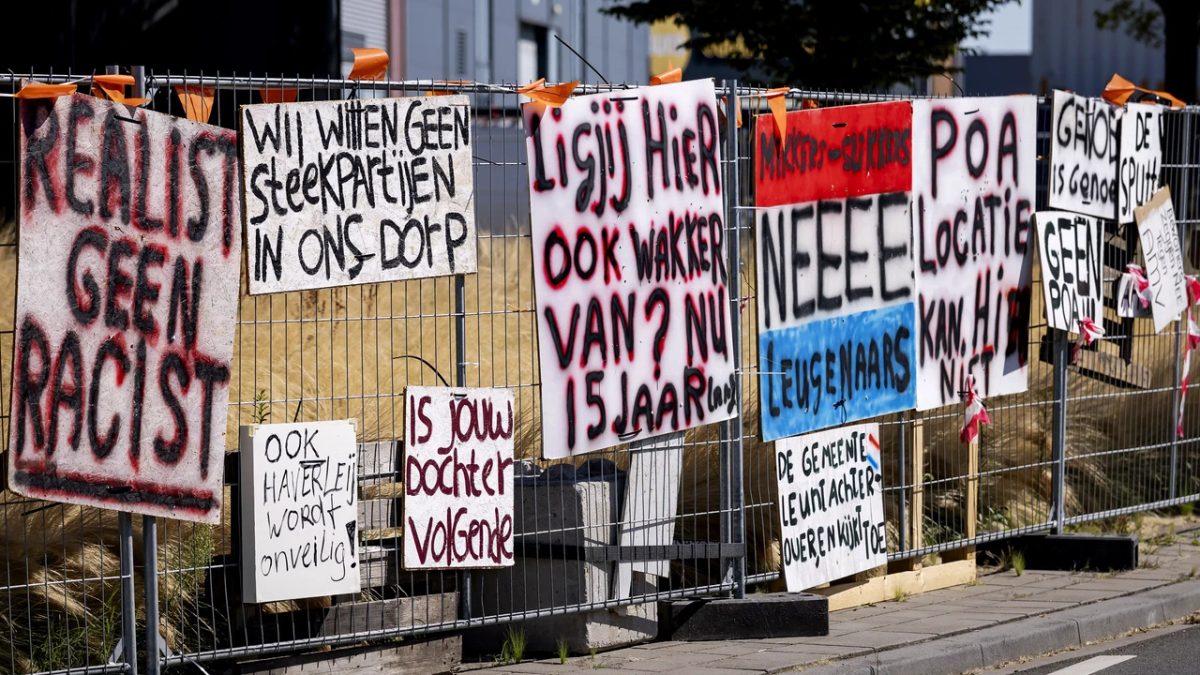 REALIST
GEEN
RACIST
WIJ WITTEN GEEN
STEEKPARTIJEN
IN ONS DORP
OOK
HAVERLEIJ
WORDT
ONVEILIG!
IS JOUW
DOCHTER
VOLGENDE
LIGJIJ HIER
OOK WAKKER
VAN? NU
15 JAAR
NEEEE
LEUGENAARS
DE GEMEENTE
LEUNT ACHTER-
OVER EN KIJKT
TOE
POA
LOCATIE
KAN HIER
NIET
IS GENOEG
DE
SPUIT
GEEN
POA